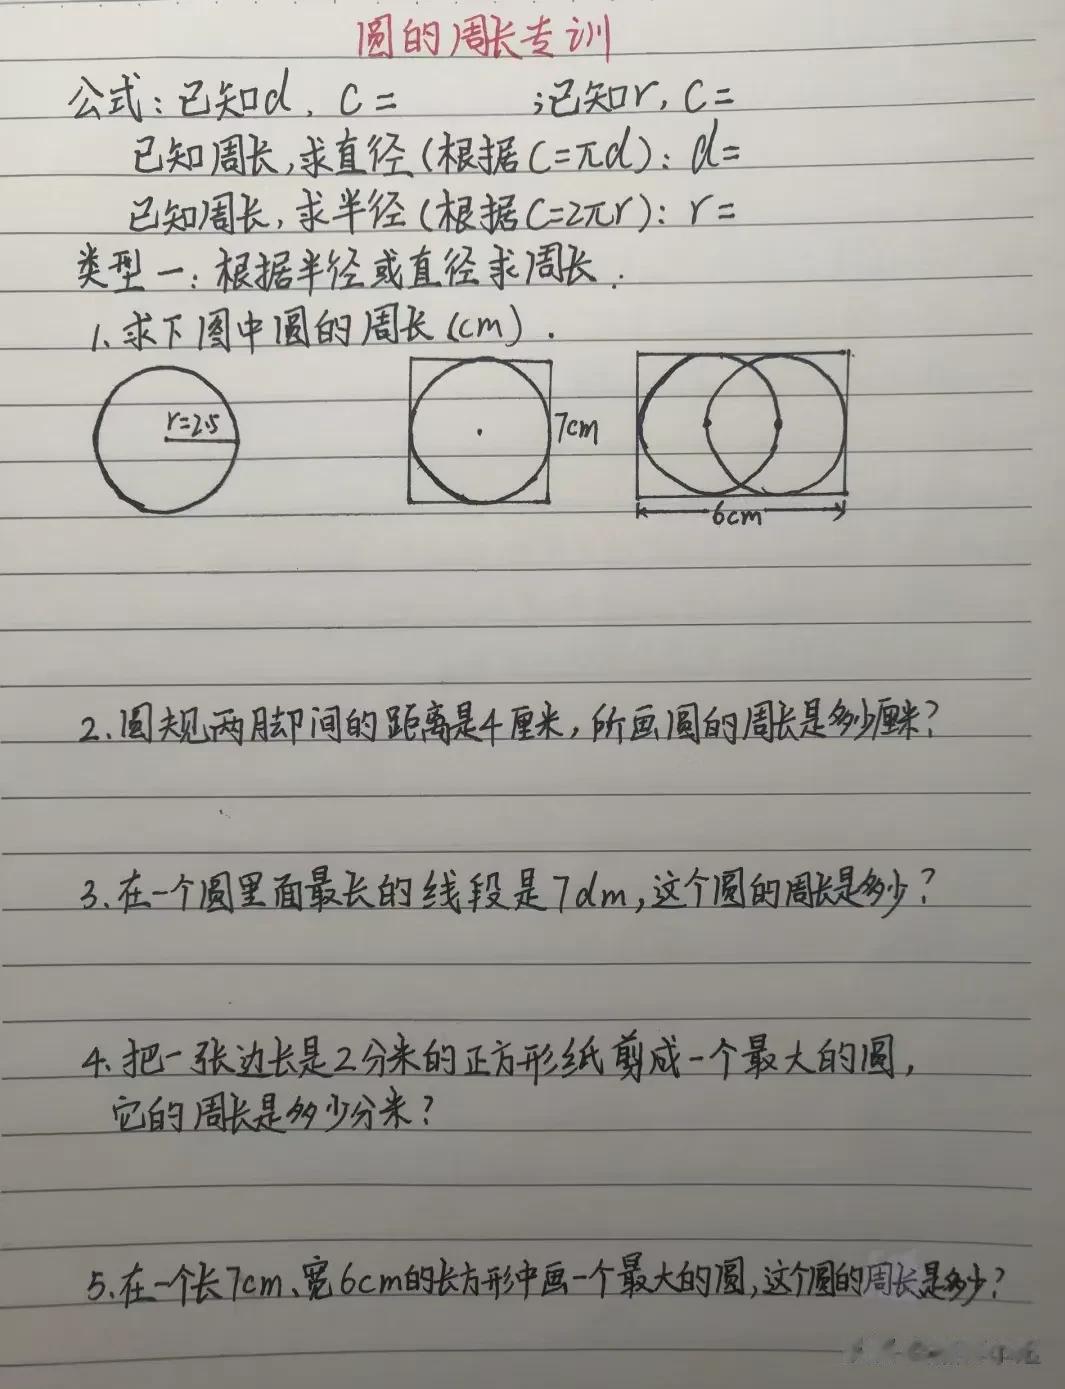 圆的周长专训
公式:已知d,C= ;已知r,C=
已知周长,求直径(根据C=πd):d=
已知周长,求半径(根据C=2πr):r=
类型一:根据半径或直径求周长.
1.求下图中圆的周长(cm).
r=2.5
7cm
6cm
2.圆规两脚间的距离是4厘米,所画圆的周长是多少厘米?
3.在一个圆里面最长的线段是7dm,这个圆的周长是多少?
4.把一张边长是2分米的正方形纸剪成一个最大的圆,
它的周长是多少分米?
5.在一个长7cm、宽6cm的长方形中画一个最大的圆,这个圆的周长是多少?